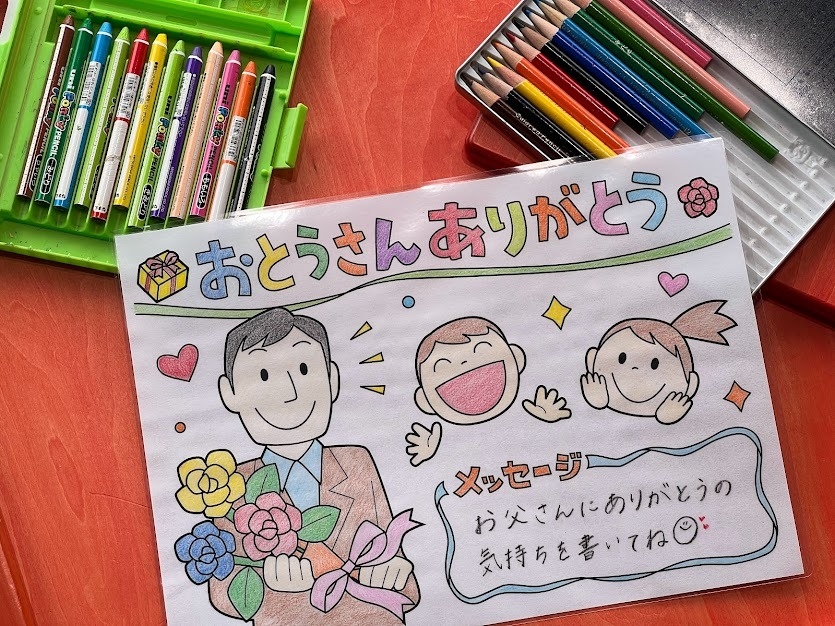 おとうさんありがとう
メッセージ
お父さんにありがとうの
気持ちを書いてね